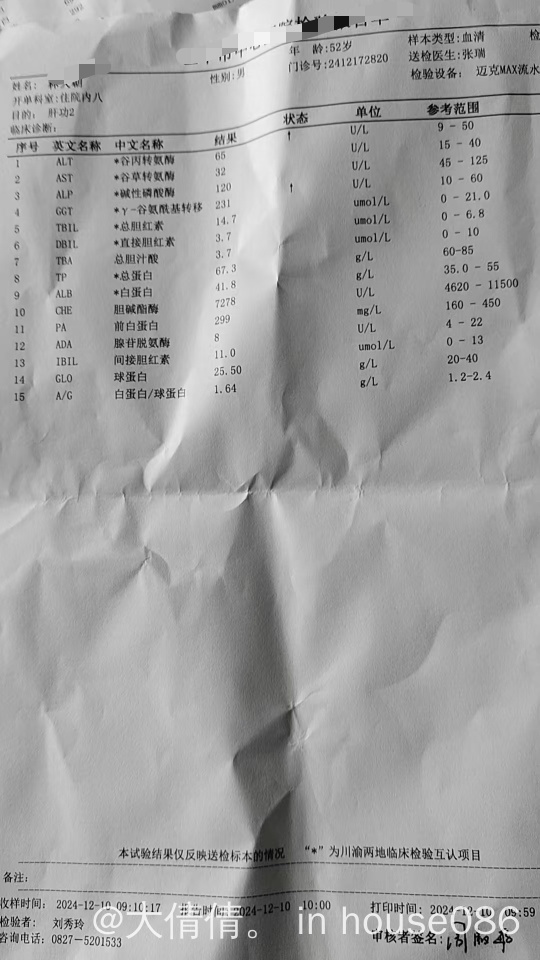 年 龄:52岁 样本类型:血清 检
姓名: 性别:男 门诊号:2412172820 送检医生:张瑞
开单科室:住院内八 检验设备: 迈克MAX流水
目的: 肝功2
临床诊断:
序号 英文名称 中文名称 结果 状态 单位 参考范围
1 ALT *谷丙转氨酶 65 ↑ U/L 9 - 50
2 AST *谷草转氨酶 32 U/L 15 - 40
3 ALP *碱性磷酸酶 120 U/L 45 - 125
4 GGT *γ-谷氨酰基转移 231 ↑ U/L 10 - 60
5 TBIL *总胆红素 14.7 umol/L 0 - 21.0
6 DBIL *直接胆红素 3.7 umol/L 0 - 6.8
7 TBA 总胆汁酸 3.7 umol/L 0 - 10
8 TP *总蛋白 67.3 g/L 60-85
9 ALB *白蛋白 41.8 g/L 35.0 - 55
10 CHE 胆碱酯酶 7278 U/L 4620 - 11500
11 PA 前白蛋白 299 mg/L 160 - 450
12 ADA 腺苷脱氨酶 8 U/L 4 - 22
13 IBIL 间接胆红素 11.0 umol/L 0 - 13
14 GLO 球蛋白 25.50 g/L 20-40
15 A/G 白蛋白/球蛋白 1.64 g/L 1.2-2.4
本试验结果仅反映送检标本的情况 "*"为川渝两地临床检验互认项目
备注:
收样时间: 2024-12-10 09:10:17 报告时间:2024-12-10 10:00 打印时间:2024-12-10 09:59
检验者: 刘秀玲 审核者签名:
咨询电话: 0827-5201533
@大倩倩。 in house086